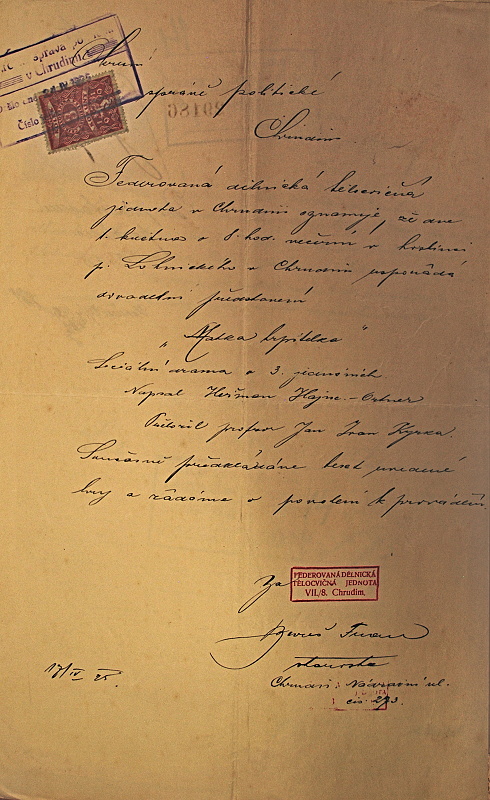 správa po
v Chrudimi
Číslo
29186
správě politické
Chrudim
Federovaná dělnická tělocvičná
jednota v Chrudimi oznamuje, že dne
1. května o 8. hod. večerní v hostinci
p. v Chrudimi uspořádá
divadelní představení
„Matka trpitelka"
Sociální drama o 3. jednáních.
Napsal Heřman Hajne.-Ortner
Přeložil profesor Jan Ivan Kyrka.
Současně předkládáme text uvedené
hry a žádáme o povolení k provádění
Za
FEDEROVANÁ DĚLNICKÁ
TĚLOCVIČNÁ JEDNOTA
VII./8. Chrudim.
starosta
Chrudim, ul.
čís. 293.
17/IV 25.